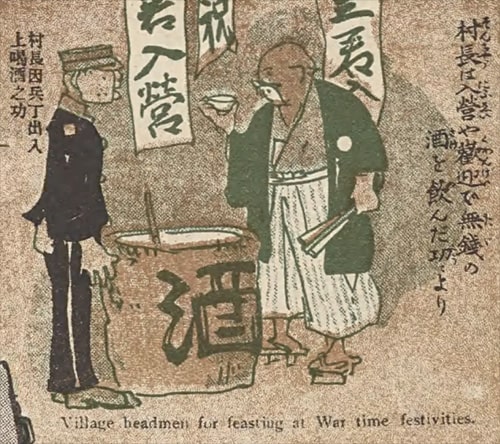 村長は入營や歡迎で無錢の
酒を飲んだ功により
君入
祝
君入營
村長因兵丁出入
上喝酒之功
酒
Village headmen for feasting at War time festivities.